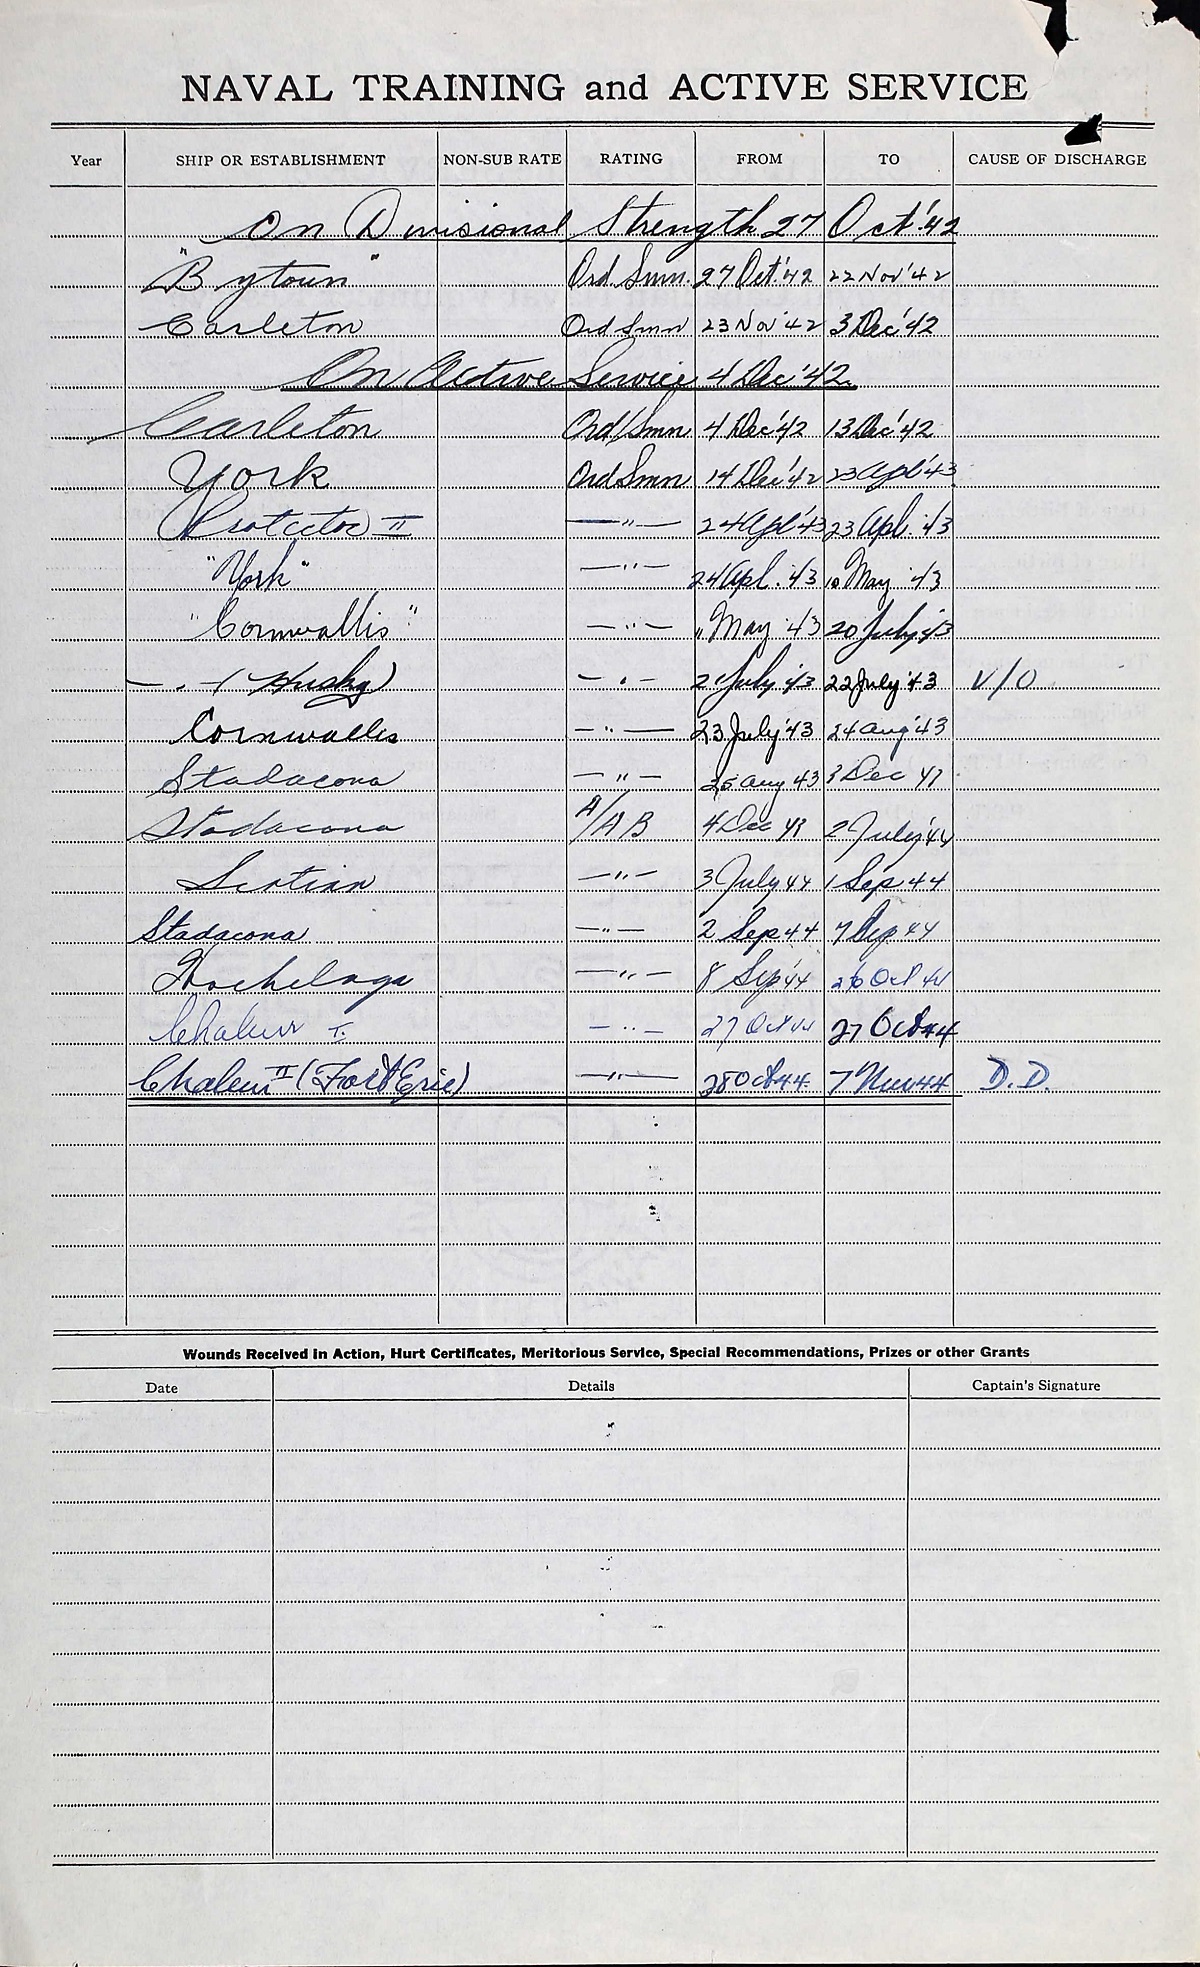 NAVAL TRAINING and ACTIVE SERVICE
Year SHIP OR ESTABLISHMENT NON-SUB RATE RATING FROM TO CAUSE OF DISCHARGE
On Divisional Strength 27 Oct '42
"Bytown" Ord. Smn. 27 Oct. '42 22 Nov '42
Carleton Ord Smn 23 Nov '42 3 Dec '42
On Active Service 4 Dec '42
Carleton Ord/Smn 4 Dec '42 13 Dec '42
York Ord Smn 14 Dec '42 23 Apl '43
Protector II —"— 24 Apl '43 23 Apl. '43
"York" —"— 24 Apl. '43 10 May '43
"Cornwallis" —"— 11 May '43 20 July '43
— . — (Husky) — " — July '43 22 July '43 V/O
Cornwallis —"— 23 July '43 24 Aug '43
Stadacona —"— 25 Aug 43 3 Dec 43
Stadacona A/AB 4 Dec 43 2 July '44
Scotian —"— 3 July 44 1 Sep 44
Stadacona —"— 2 Sep 44 7 Sep 44
Hochelaga —"— 8 Sep '44 26 Oct 44
Chaleur I. —"— 27 Oct 44 27 Oct 44
Chaleur II (Fort Erie) —"— 28 Oct 44 7 Nov 44 D.D.
Wounds Received in Action, Hurt Certificates, Meritorious Service, Special Recommendations, Prizes or other Grants
Date Details Captain's Signature